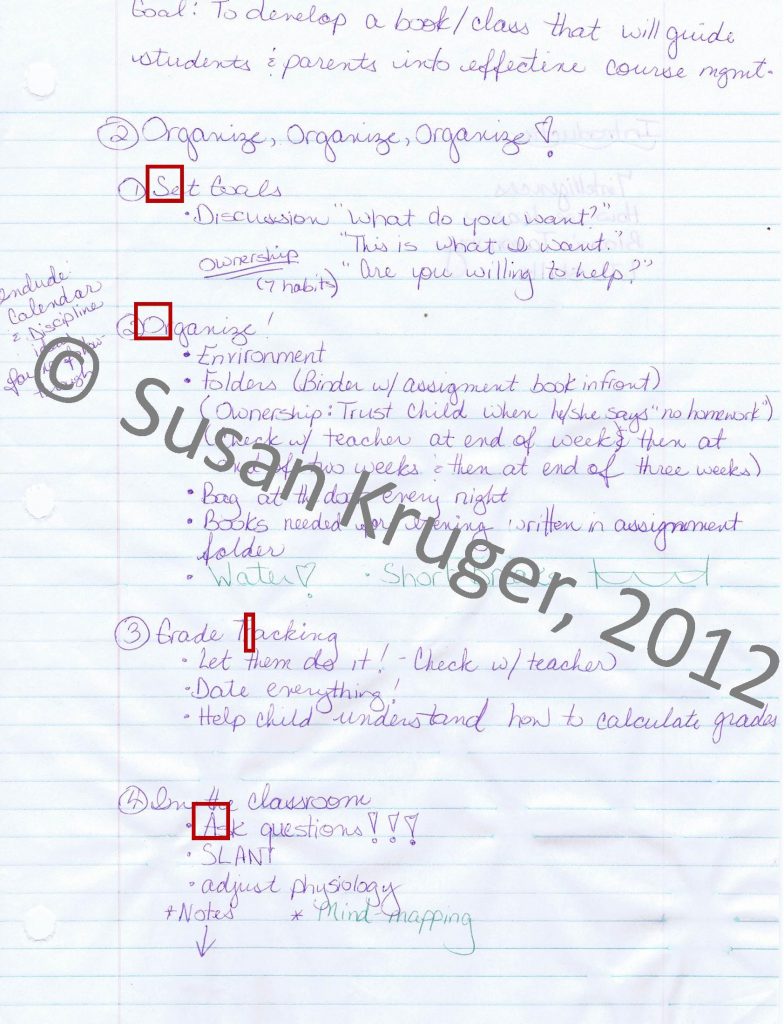 Goal: To develop a book/class that will guide
students & parents into effective course mgmt.
② Organize, Organize, Organize!
① Set Goals
• Discussion "What do you want?"
"This is what I want."
Ownership
(7 habits) "Are you willing to help?"
Include:
Calendar
& Discipline
② Organize!
• Environment
• Folders (Binder w/ assigment book infront)
(Ownership: Trust child when he/she says "no homework")
(Check w/ teacher at end of week & then at
end of two weeks & then at end of three weeks)
• Bag at the door every night
• Books needed for evening written in assignment
folder
• Water! • Short Breaks
③ Grade Tracking
• Let them do it! - Check w/ teacher
• Date everything!
• Help child understand how to calculate grades
④ In the classroom
• Ask questions!!!
• SLANT
• adjust physiology
+Notes * Mind-mapping
© Susan Kruger, 2012